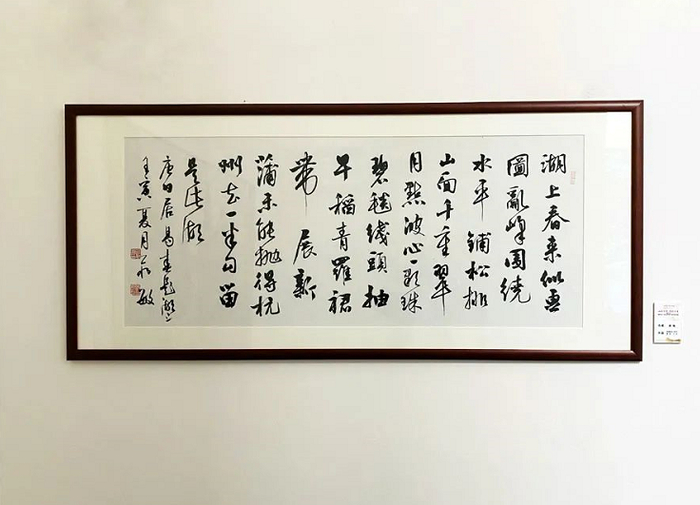 湖上春来似画
圖亂峰圍繞
水平鋪松排
山面千重翠
月點波心一顆珠
碧毯綫頭抽
早稻青羅裙
帶展新
蒲未能抛得杭
州去一半勾留
是此湖
唐白居易春題湖上
壬寅夏月敏